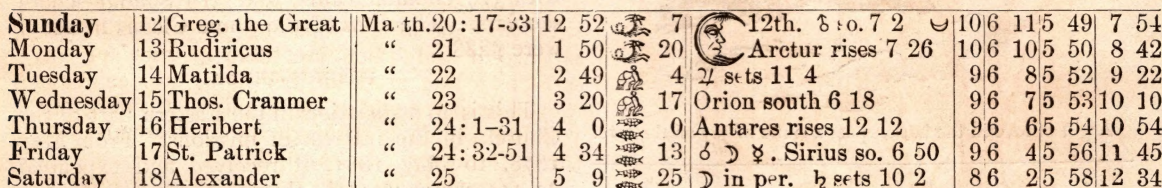 Sunday 12 Greg. the Great Ma th. 20: 17-33 12 52 7 12th. ♄ so. 7 2 10 6 11 5 49 7 54
Monday 13 Rudiricus “ 21 1 50 20 Arctur rises 7 26 10 6 10 5 50 8 42
Tuesday 14 Matilda “ 22 2 49 4 ♃ sets 11 4 9 6 8 5 52 9 22
Wednesday 15 Thos. Cranmer “ 23 3 20 17 Orion south 6 18 9 6 7 5 53 10 10
Thursday 16 Heribert “ 24: 1–31 4 0 0 Antares rises 12 12 9 6 6 5 54 10 54
Friday 17 St. Patrick “ 24: 32-51 4 34 13 ☌ ☽ ☿. Sirius so. 6 50 9 6 4 5 56 11 45
Saturday 18 Alexander “ 25 5 9 25 ☽ in per. ♄ sets 10 2 8 6 2 5 58 12 34